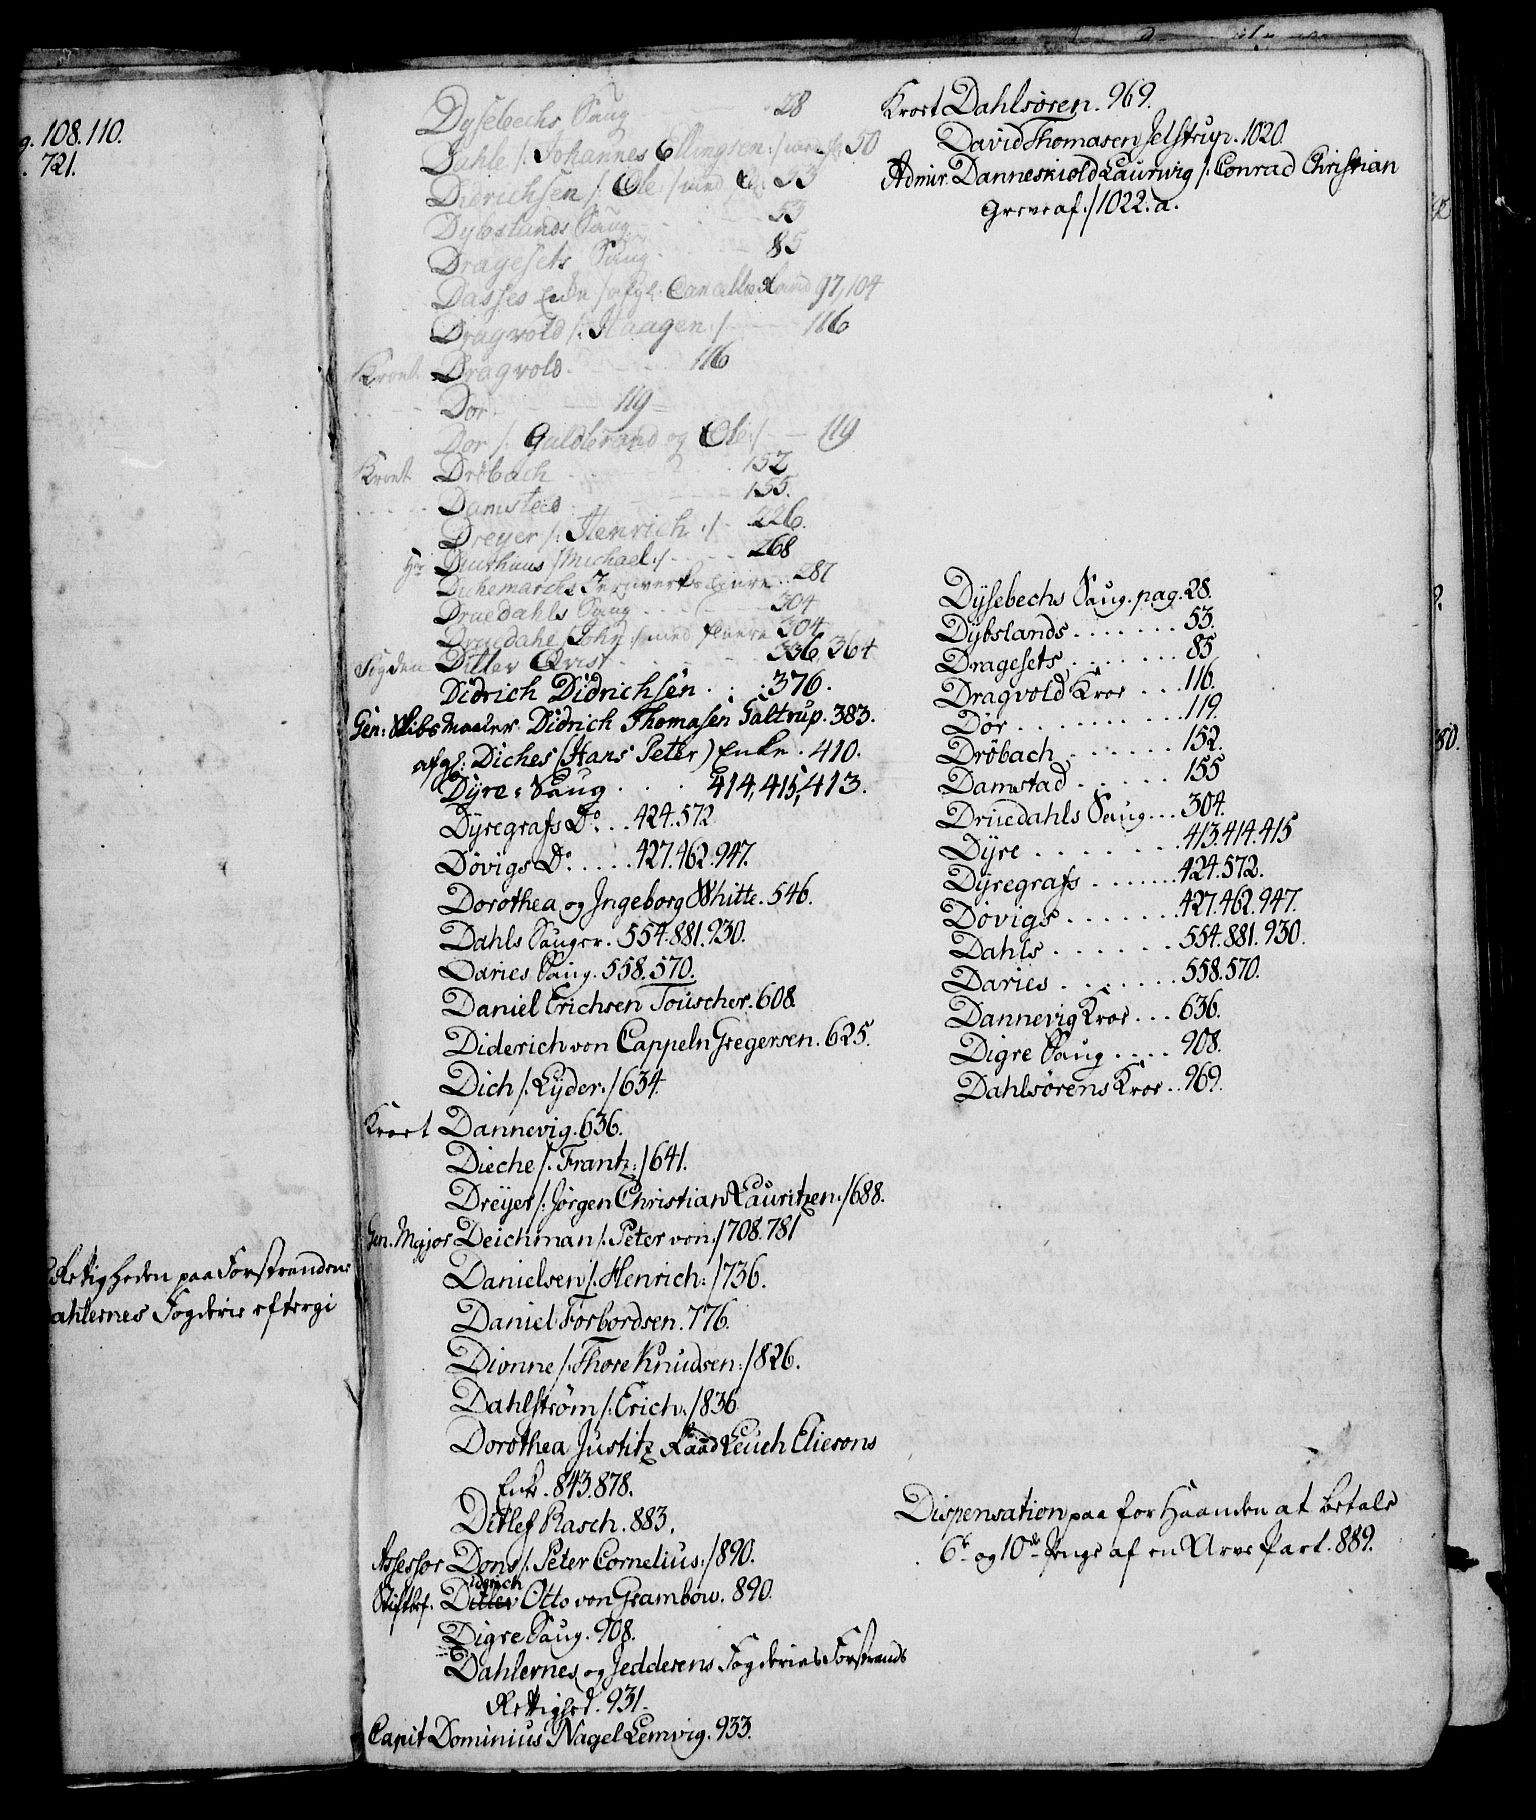 g. 108. 110.
. 721.
Rettigheden paa Forstrandene
ahlernes Fogderie eftergi
Dysebechs Saug 28
Duhle /: Johannes Ellingsen :/ 50
Didrichsen /: Ole :/ med fl: 53
Dybslands Saug 53
Dragesets Saug 85
Dasses Enke /afgl. Cancellie Raad 97, 104
Dragvold /: Haagen :/ 116
Kroet Dragvold 116
Dør 119
Dør /: Guldbrand og Ole :/ 119
Kroet Drøbach 152
Damsted 155.
Dreyer /: Henrich :/ 226.
Hr /Michael :/ 268
Dichemarchs Jernverks 287
Druedahls Saug 304
Druedahl /John :/ med fleere 304
Sigden Ditlev Qvist 336, 364
Didrich Didrichsen . . . 376.
Gen: Skibs Maaler Didrich Thomasen Galtrup. 383.
afgl: Diches (Hans Peter) Enke . 410.
Dyre: Saug . . . 414, 415, 413.
Dyregrafs Do. . . 424. 572
Døvigs Do. . . . 427. 462. 947.
Dorothea og Ingeborg Whitte. 546.
Dahls Sauger. 554. 881. 930.
Daries Saug. 558. 570.
Daniel Erichsen Touscher. 608.
Diderich von Cappeln Gregersen. 625.
Dich /: Lyder :/ 634.
Kroet Dannevig. 636.
Dieche /: Frantz :/ 641.
Dreyer /: Jørgen Christian Lauritzen :/ 688.
Gen. Major Deichman /: Peter von :/ 708. 781
Danielsen /: Henrich :/ 736.
Daniel Forbordsen. 776.
Dionne /: Thore Knudsen :/ 826.
Dahlstrøm /: Erich :/ 836
Dorothea Justitz Raad Leuch Eliesons
Enke. 843. 878.
Ditlef Rasch. 883.
Assessor Dons /: Peter Cornelius :/ 890.
Stiftbef. Diderich Otto von Grambow. 890.
Digre Saug. 908.
Dahlernes og Jedderens Fogderies Forstrands
Rettighed. 931.
Capit Dominius Nagel Lemvig. 933.
Kroet Dahlsøren. 969.
David Thomasen Jelstrup. 1020.
Admir. Danneskiold Laurwig /: Conrad Christian
Greve af :/ 1022. a.
Dysebechs Saug. pag. 28.
Dybslands . . . . . . 53.
Dragesets . . . . . . 85
Dragvold Kroe . . . 116.
Dør . . . . . . . . 119.
Drøbach . . . . . . 152.
Damstad . . . . . 155
Druedahls Saug . . . 304.
Dyre . . . . . . . 413. 414. 415
Dyregrafs . . . . . . 424. 572.
Døvigs . . . . . . . 427. 462. 947.
Dahls . . . . . . . 554. 881. 930.
Daries . . . . . . . 558. 570.
Dannevig Kroe . . . 636.
Digre Saug . . . . 908.
Dahlsørens Kroe . . 969.
Dispensation paa for Haanden at betale
6te og 10de Penge af en Arve Part. 889.
80.